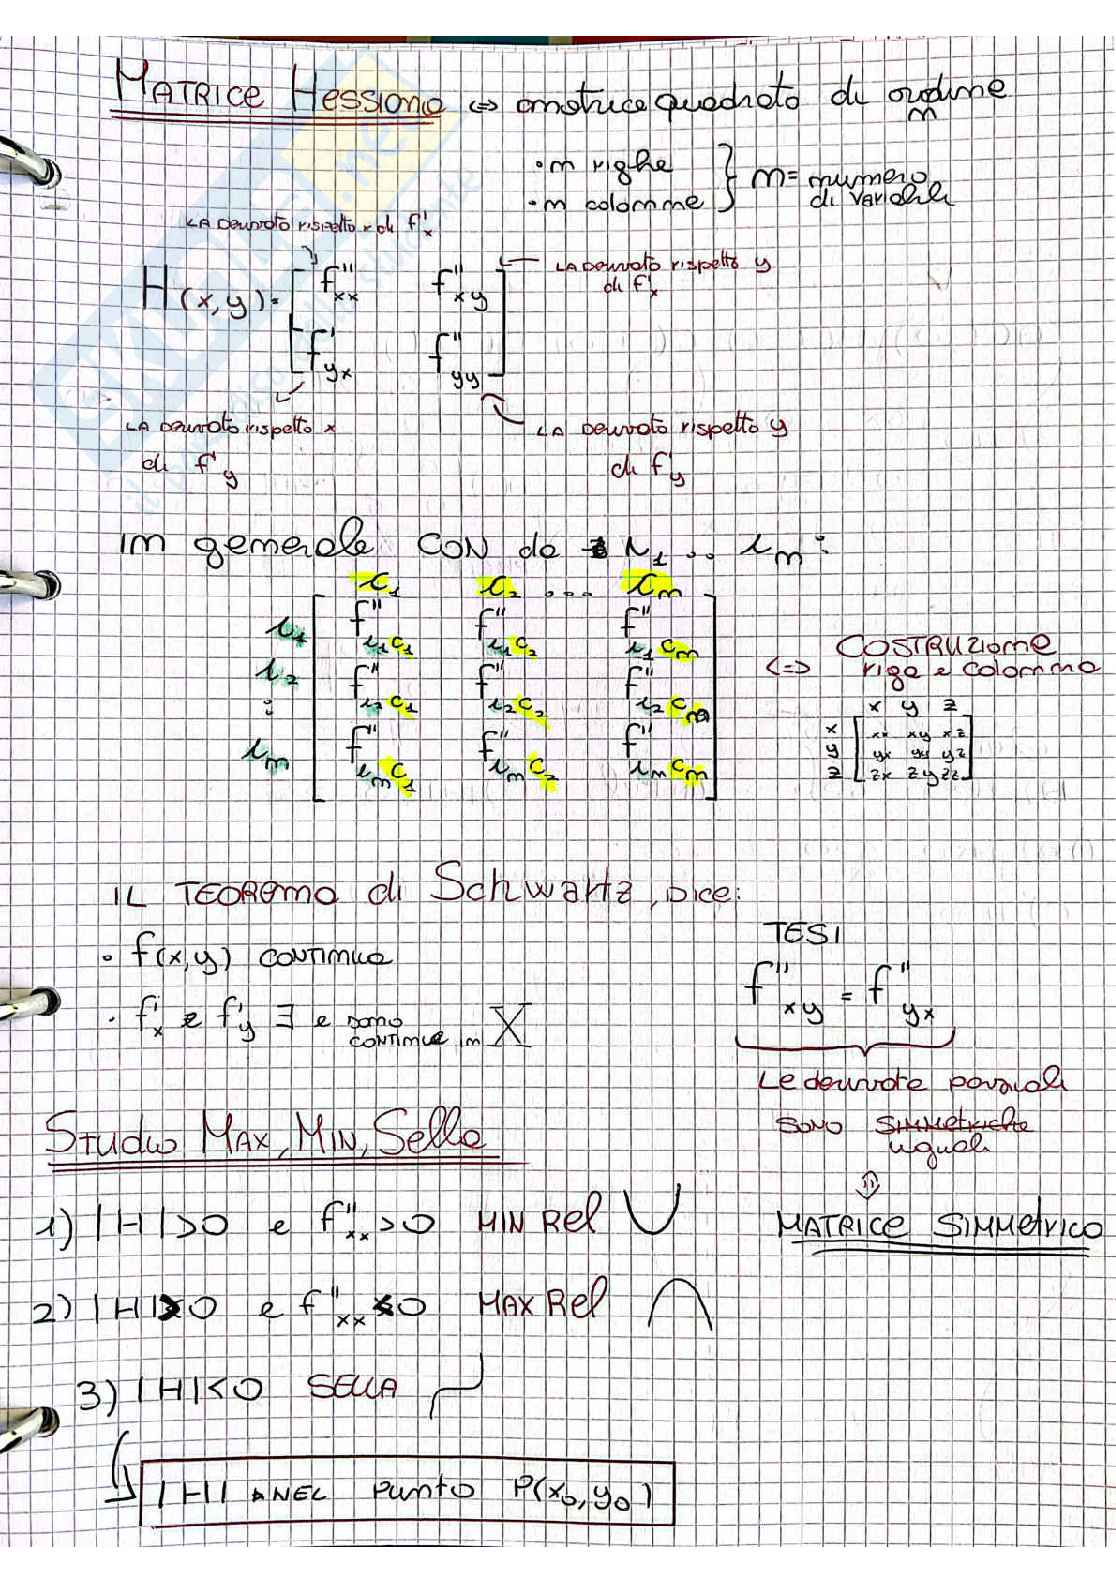 MATRICE Hessiana ⇔ matrice quadrata di ordine n
• n righe
• n colonne } n = numero di variabili
LA Derivata rispetto x di f'x
H(x,y) = [ f''xx f''xy
LA Derivata rispetto y di f'x
f''yx f''yy ]
LA Derivata rispetto x di f'y
LA Derivata rispetto y di f'y
in generale CON da i1 .. in :
c1 c2 ... cn
i1 f''i1c1 f''i1c2 f''i1cn
i2 f''i2c1 f''i2c2 f''i2cn
:
in f''inc1 f''inc2 f''incn
⇔ COSTRUZione
riga e colonna
x y z
x xx xy xz
y yx yy yz
z zx zy zz
IL TEOREMA di Schwartz, DICE:
• f(x,y) continua
• f'x e f'y ∃ e sono continue in X
TESI
f''xy = f''yx
Le derivate parziali
sono simmetriche
uguali
⇓
MATRICE SIMMetrica
Studio MAX, MIN, Sella
1) |H|>0 e f''xx >0 MIN Rel
2) |H|>0 e f''xx <0 MAX Rel
3) |H|<0 SELLA
|H| NEL Punto P(x0,y0)